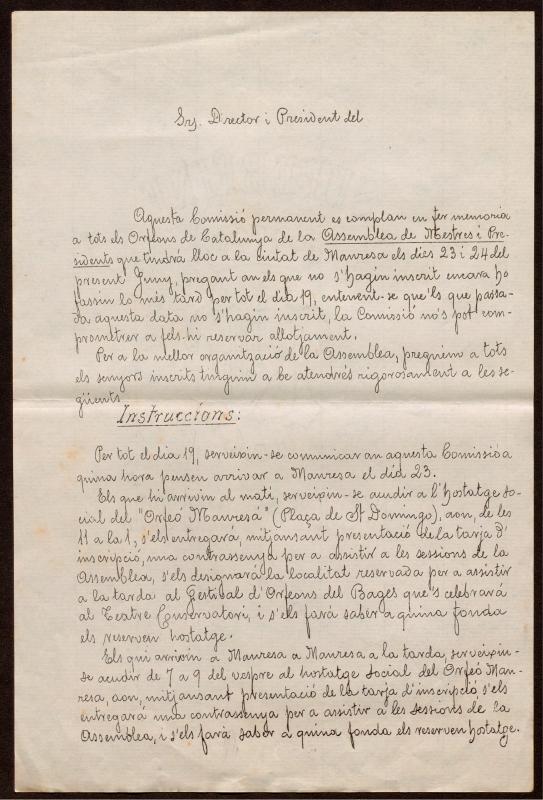 Srs. Director i President del
Aquesta Comissió permanent es complau en fer memoria
a tots els Orfeons de Catalunya de la Assemblea de Mestres i Pre-
sidents que tindrá lloc a la ciutat de Manresa els dies 23 i 24 del
present Juny, pregant an els que no s'hagin inscrit encara ho
fassin lo més tard per tot el dia 19, entenent-se que'ls que passa-
da aquesta data no s'hagin inscrit, la Comissió no's pot com-
prometrer a fels-hi reservar allotjament.
Per a la mellor organització de la Assemblea, preguém a tots
els senyors inscrits tinguin a be atendrés rigorosament a les se-
güents
Instruccions:
Per tot el dia 19, serveixin-se comunicar an aquesta Comissió a
quina hora pensen arrivar a Manresa el dia 23.
Els que hi arrivin al matí, serveixin-se acudir a l'hostatge so-
cial del "Orfeó Manresá" (Plaça de St Domingo), aon, de les
11 a la 1, s'els entregará, mitjansant presentació de la tarja d'
inscripció, una contrassenya per a assistir a les sessions de la
Assemblea, s'els designará la localitat reservada per a assistir
a la tarda al Festival d'Orfeons del Bages que's celebrará
al Teatre Conservatori, i s'els fará saber a quina fonda
els reserven hostatge.
Els qui arrivin a Manresa a Manresa a la tarda, serveixin-
se acudir de 7 a 9 del vespre al hostatge social del Orfeó Man-
resa, aon, mitjansant presentació de la tarja d'inscripció, s'els
entregará una contrassenya per a assistir a les sessions de la
Assemblea, i s'els fará saber a quina fonda els reserven hostatge.